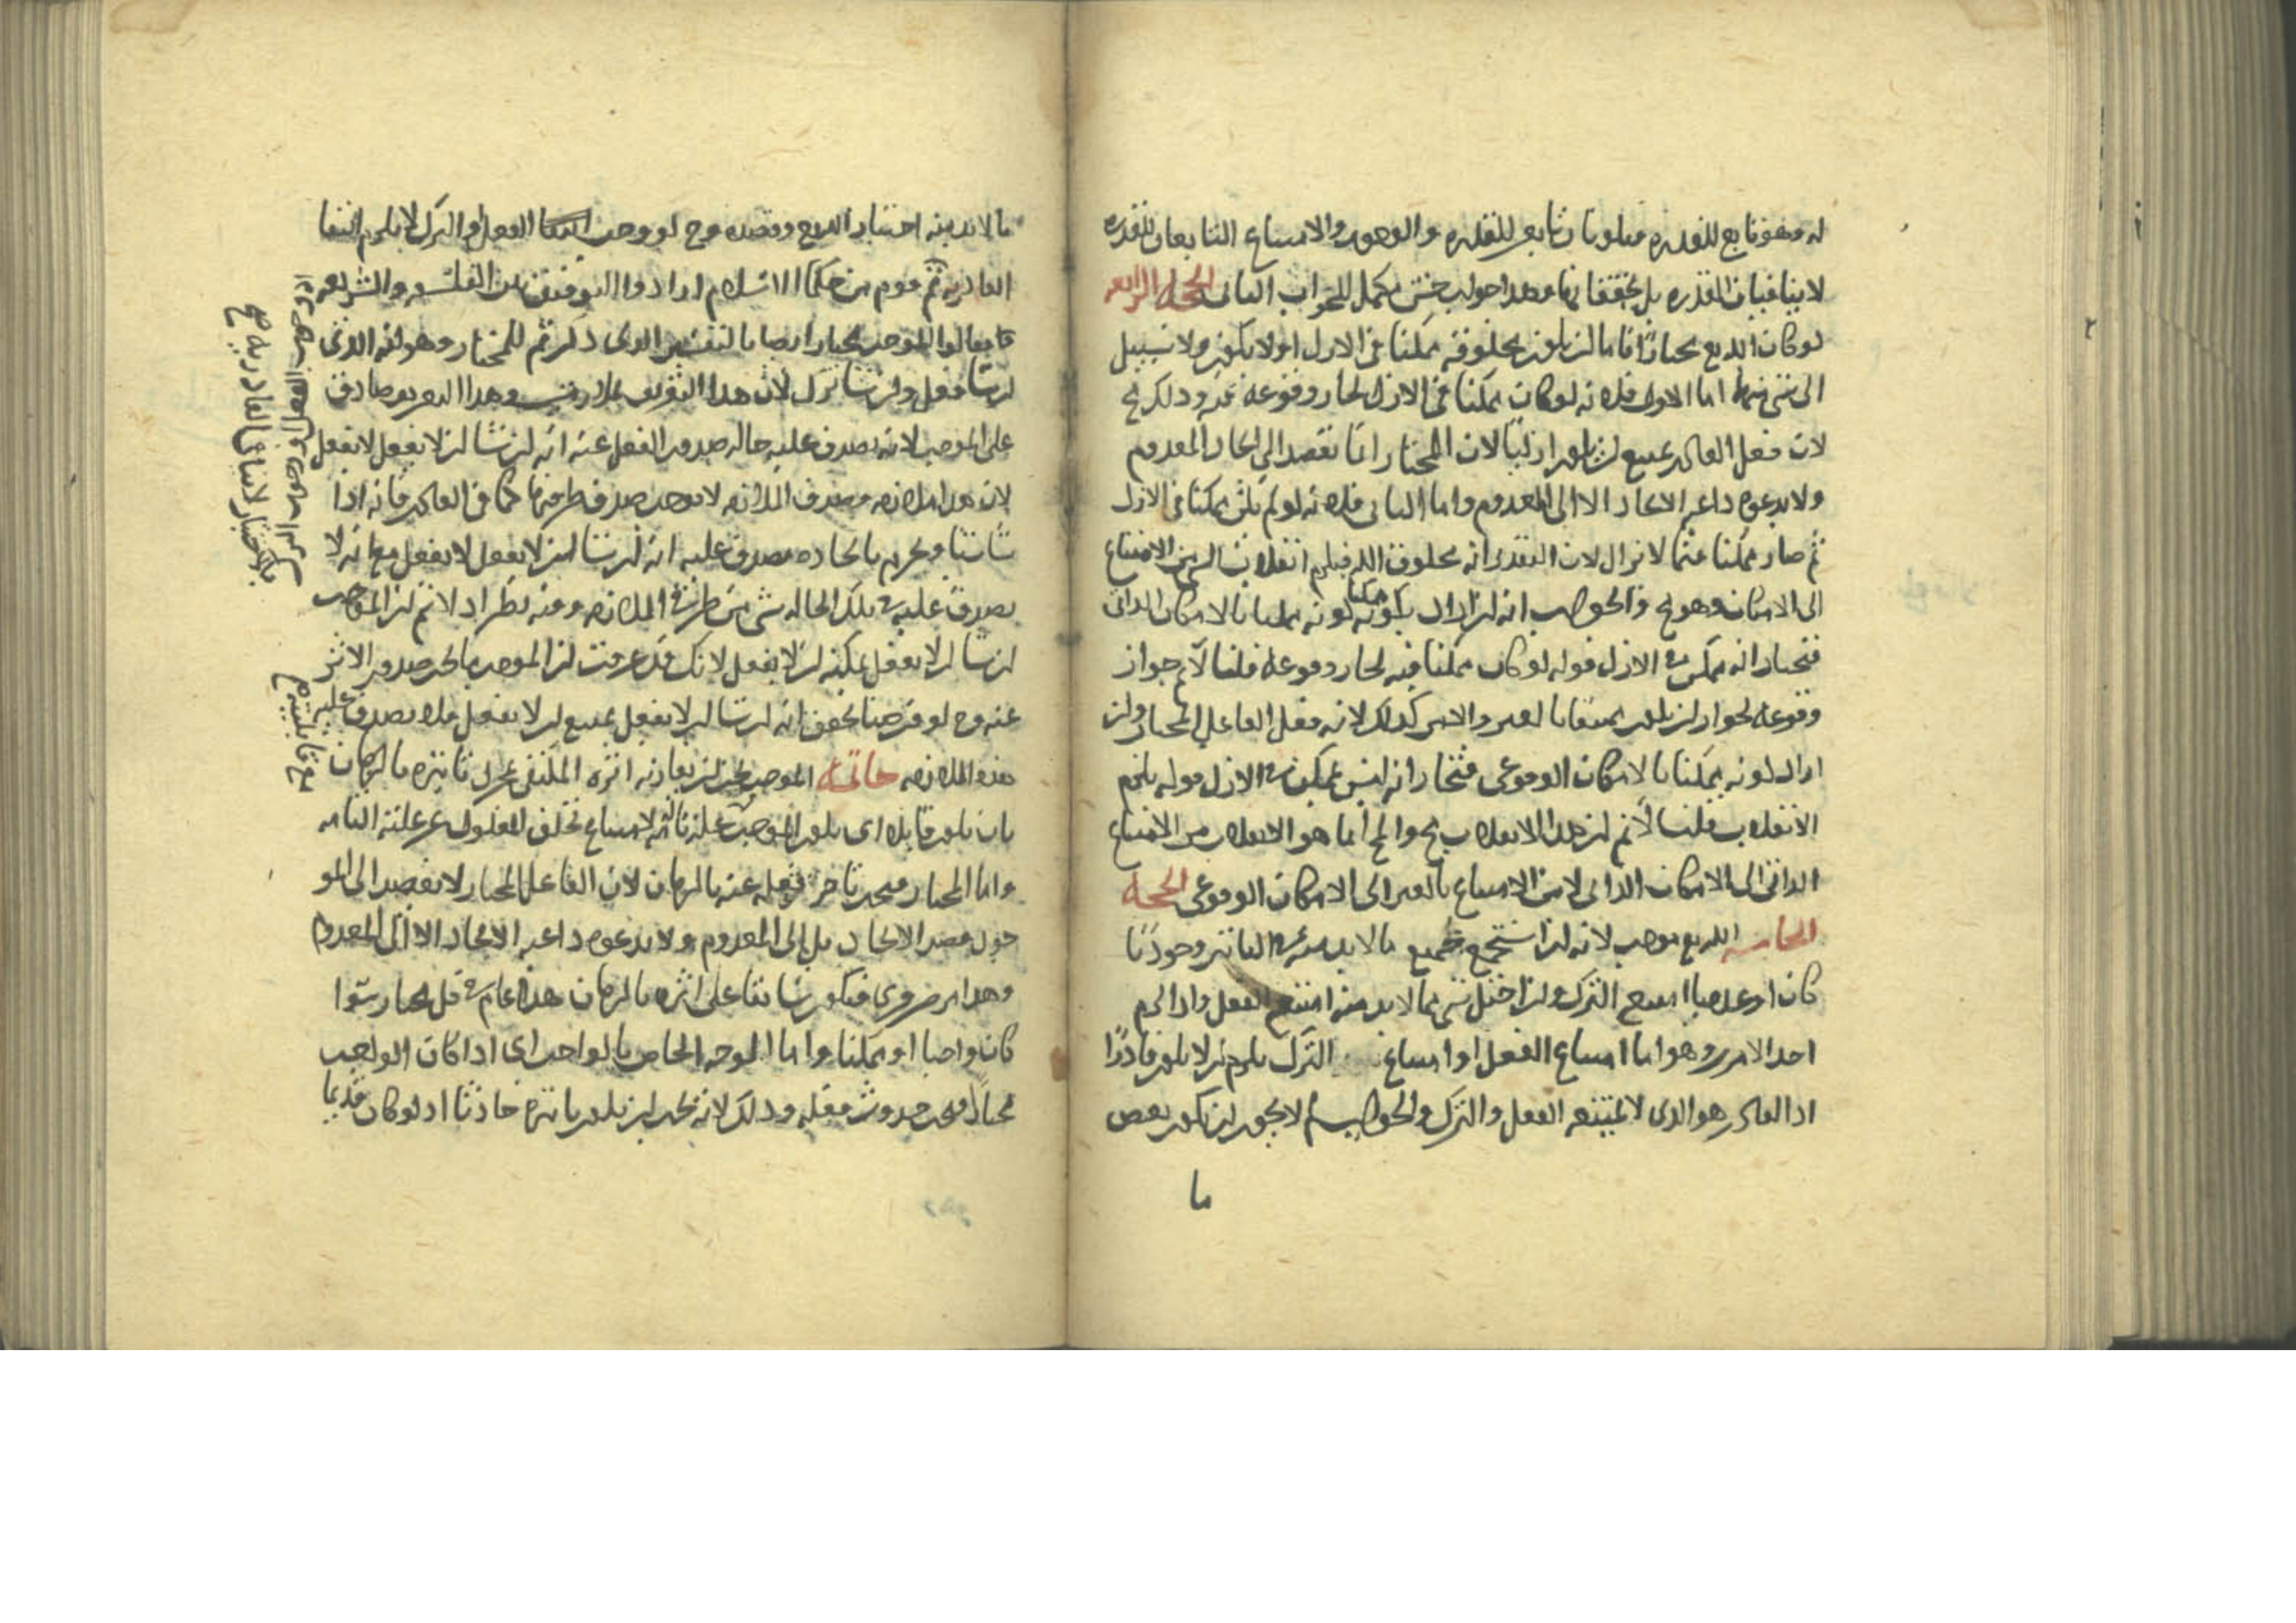 له فهو تابع للقدره فيكونان تابعين للقدره والوجود والامتناع التابعان للقدره
لا ينافيان القدره بل يحققانها وهذا جواب حسن مكمل للجواب الثانى الحجه الرابعه
لو كان البديع مختارا فاما ان يكون مخلوقه ممكنا فى الازل او لا يكون ولا سبيل
الى شى منهما اما الاول فلانه لو كان ممكنا فى الازل لجاز وقوعه فيه وذلك مح
لان فعل القادر يمتنع ان يكون ازليا لان المختار انما يقصد الى ايجاد المعدوم
ولا يدعوه داعيه الايجاد الا الى المعدوم واما الثانى فلانه لو لم يكن ممكنا فى الازل
ثم صار ممكنا فيما لا يزال لان التقدير انه مخلوق الله فيلزم انقلاب الشى من الامتناع
الى الامكان وهو مح والجواب انه ان اراد بكونه ممكنا كونه ممكنا بالامكان الذاتى
فنختار انه ممكن فى الازل قوله لو كان ممكنا فيه لجاز وقوعه قلنا لا نم جواز
وقوعه لجواز ان يكون ممتنعا بالغير والامر كذلك لانه فعل الفاعل المختار وان
اراد كونه ممكنا بالامكان الوقوعى فنختار انه ليس بممكن فى الازل قوله يلزم
الانقلاب قلنا لا نم ان هذا الانقلاب مح والمح انما هو الانقلاب من الامتناع
الذاتى الى الامكان الذاتى لا من الامتناع بالغير الى الامكان الوقوعى الحجه
الخامسه البديع موجب لانه ان استجمع جميع ما لا بد منه فى التاثير وجوديا
كان او عدميا امتنع الترك وان اختل شى مما لا بد منه امتنع الفعل واذا لزم
احد الامرين وهو اما امتناع الفعل او امتناع الترك يلزم ان لا يكون قادرا
اذ القادر هو الذى لا يمتنع منه الفعل والترك والجواب لم لا يجوز ان يكون بعض
ما
ما لا بد منه اختيار البديع وقصده وح لو وجب الفعل او الترك لا يلزم انتفا
القادريه ثم قوم من حكما الاسلام ارادوا التوفيق بين الفلسفه والشريعه
فقالوا الموجب مختار ايضا بالتفسير الذى ذكرتم للمختار وهو انه الذى
ان شا فعل وان شا ترك لان هذا التعريف وهذا التعريف صادق
على الموجب لانه يصدق عليه حاله صدور الفعل عنه انه ان شا ان لا يفعل لا يفعل
لان هذا ملازمه وصدق الملازمه لا يوجب صدق طرفيها كما فى القادر فانه اذا
يصدق عليه انه ان شا ان لا يفعل لا يفعل مع انه لا
يصدق عليه فى تلك الحاله شى من طرفى الملازمه وفيه نظر اذ لا نم ان الموجب
ان شا ان لا يفعل يمكنه ان لا يفعل لانك قد عرفت ان الموجب ما يجب صدور الاثر
عنه وح لو فرضنا تحقق انه ان شا ان لا يفعل يمتنع ان لا يفعل فلا يصدق عليه
هذه الملازمه خاتمه الموجب يجب ان يقارنه اثره المكتفى بمجرد تاثيره بالزمان
بان يكون قابلا اى يكون الموجب عله تامه لامتناع تخلف المعلول عن علته التامه
واما المختار فيجب تاخر فعله عنه بالزمان لان الفاعل المختار لا يقصد الى المو
جود قصد الايجاد بل الى المعدوم ولا يدعوه داعيه الايجاد الا الى المعدوم
وهذا امر ضرورى فيكون سابقا على اثره بالزمان هذا عام فى كل مختار سوا
كان واجبا او ممكنا واما الوجه الخاص بالواجب اى اذا كان الواجب
مختارا وجب حدوث فعله وذلك لانه يجب ان يكون تاثيره حادثا اذ لو كان قديما